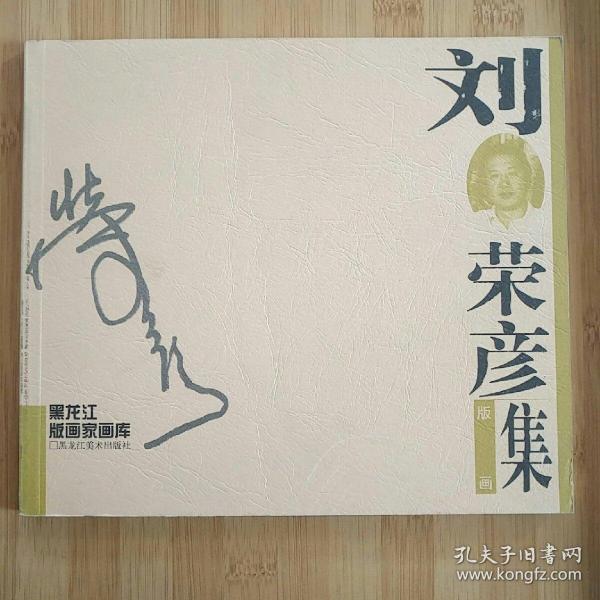 刘
荣彦
版画
集
黑龙江
版画家画库
黑龙江美术出版社
孔夫子旧书网
www.kongfz.com